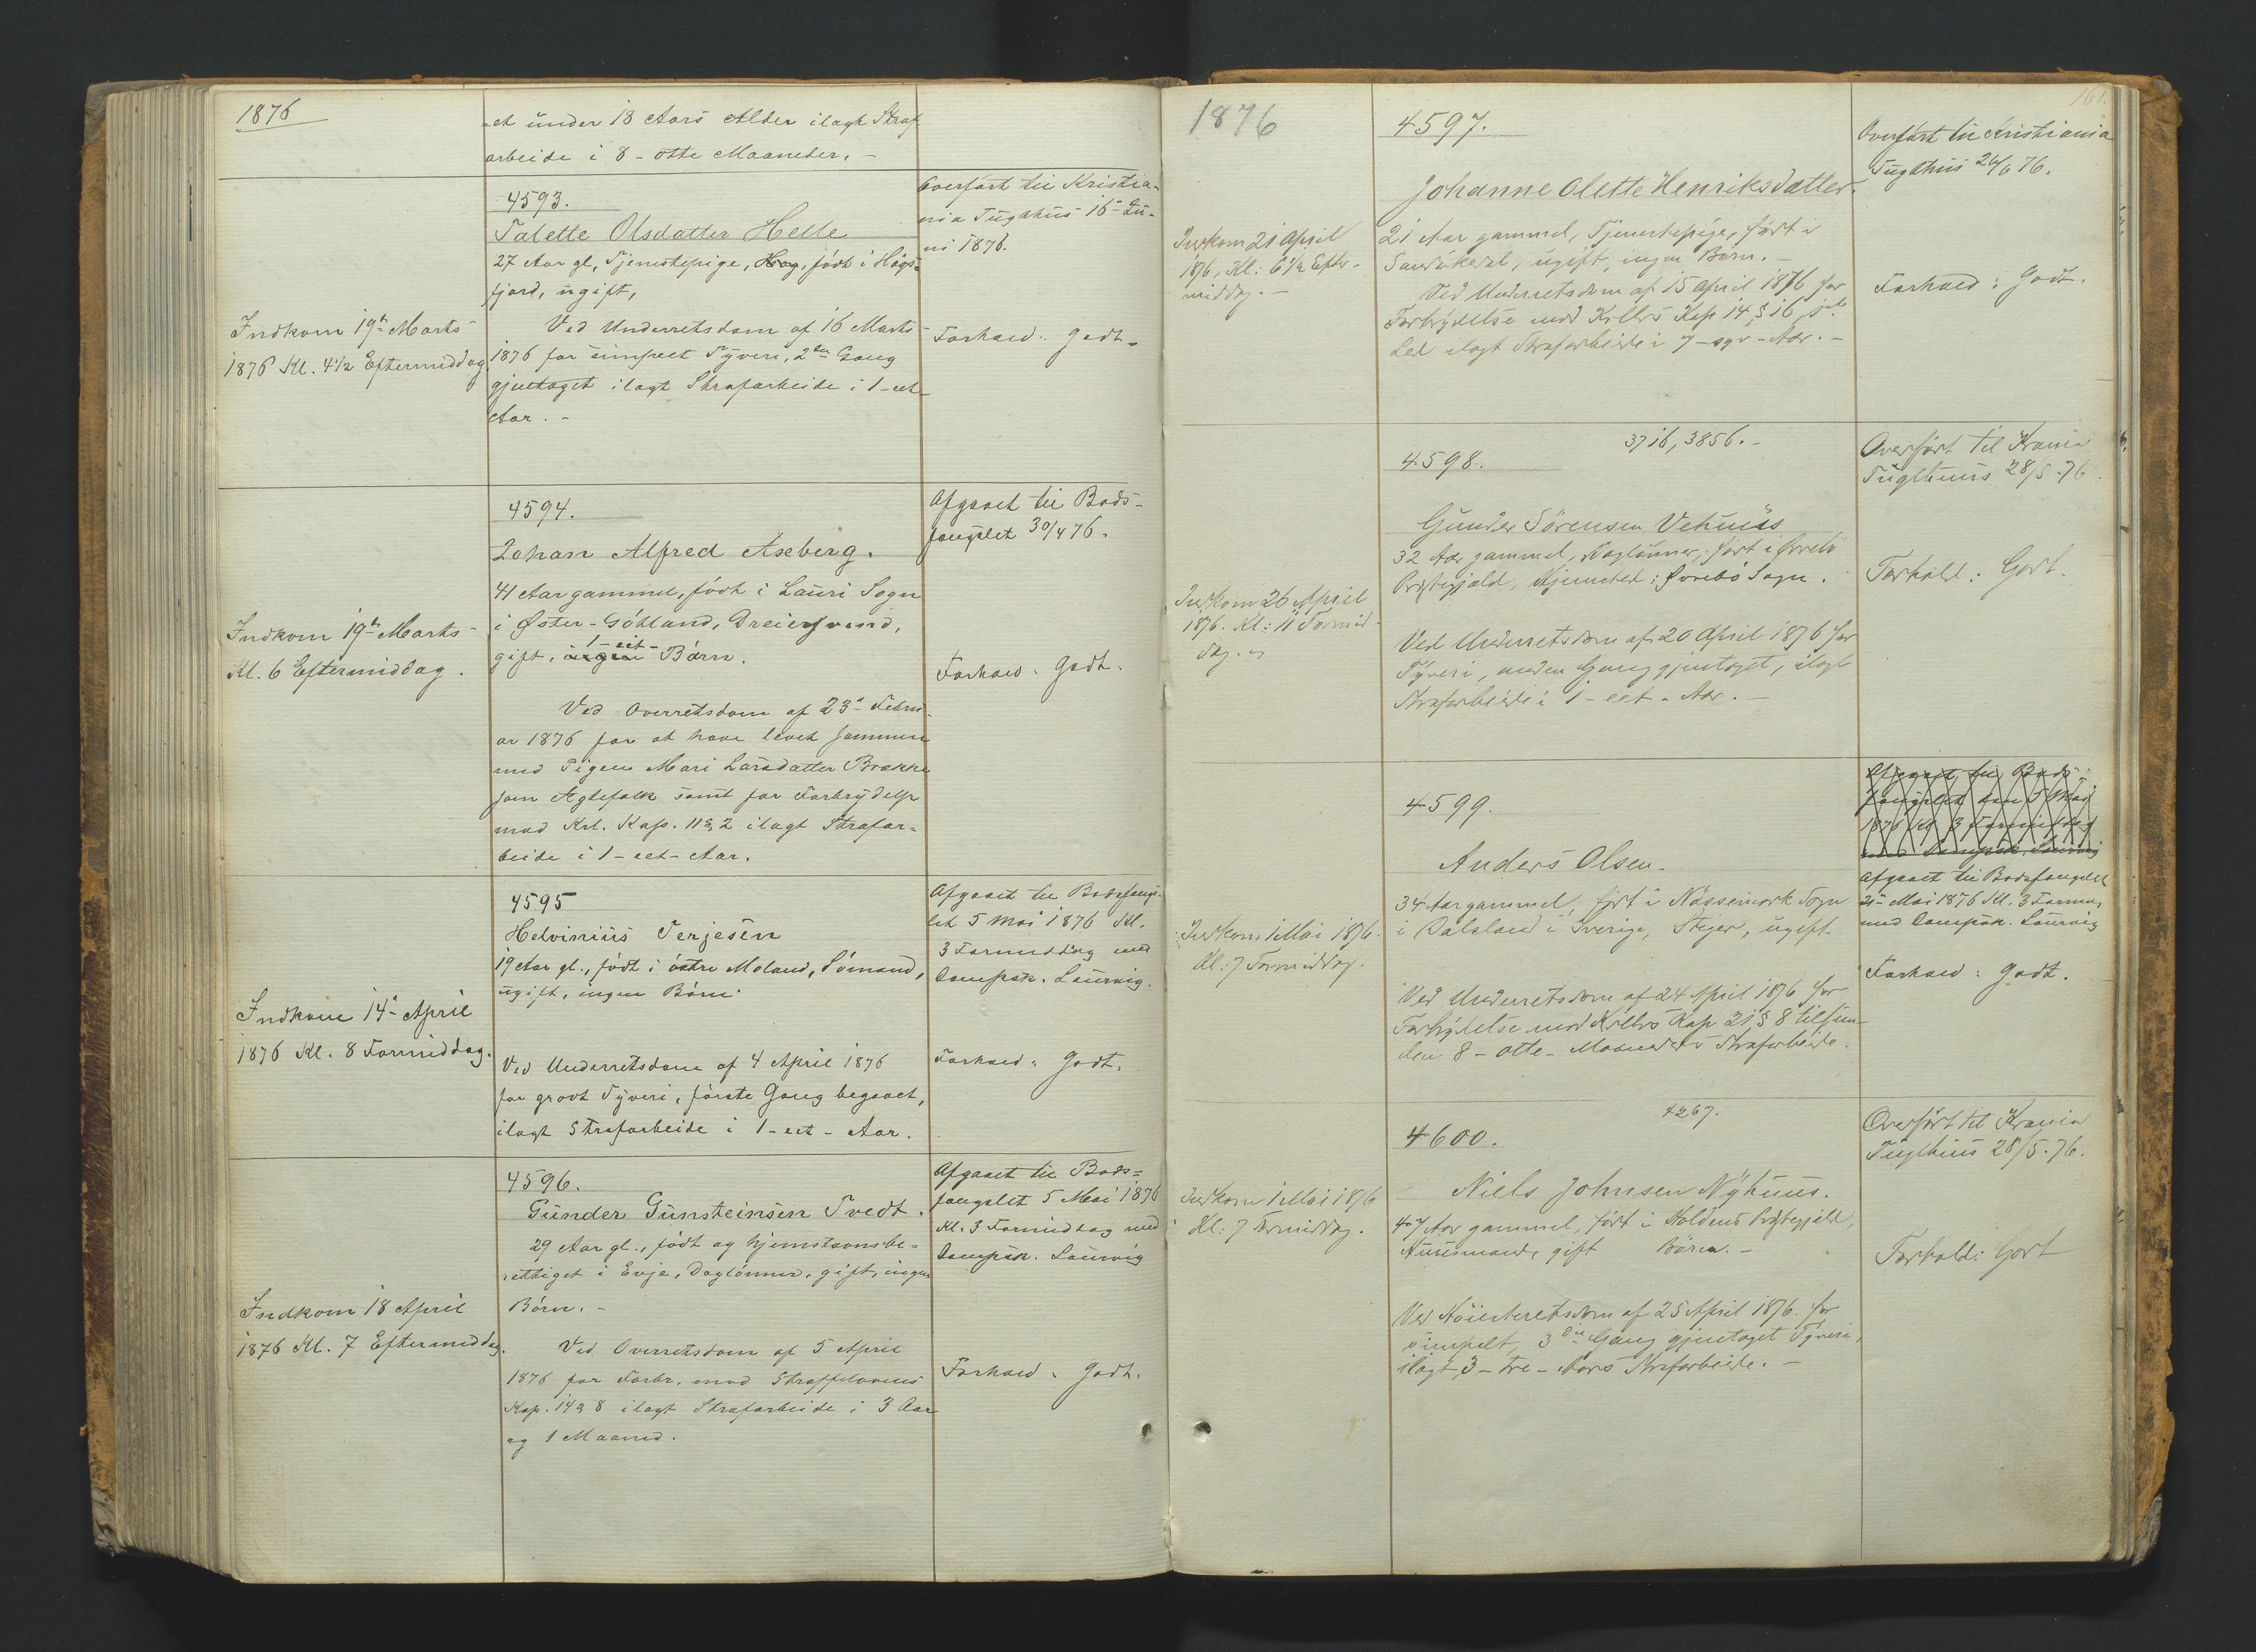 1876
-et under 18 Aars Alder ilagt Straf-
arbeide i 8 - otte Maaneder. -
4593.
Talette Olsdatter Helle
27 Aar gl, Tjenestepige, født i Høgs-
fjord, ugift,
Indkom 19de Marts
1876 Kl. 4 1/2 Eftermiddag
Ved Underretsdom af 16 Marts
1876 for simpelt Tyveri, 2den Gang
gjentaget ilagt Strafarbeide i 1 - eet
Aar. -
Overført til Kristia-
nia Tugthus 16 Ju-
ni 1876.
Forhold: Godt.
4594.
Johan Alfred Axeberg.
41 Aar gammel, født i Lauri Sogn
i Øster-Götland, Dreiersvend,
1 - eet -
gift, ingen Børn.
Indkom 19de Marts
Kl. 6 Eftermiddag.
Ved Overretsdom af 23de Febru-
ar 1876 for at have levet sammen
med Pigen Mari Larsdatter Brække
som Ægtefolk samt for Forbrydelse
mod Krl. Kap. 11 § 2 ilagt Strafar-
beide i 1 - eet - Aar.
Afgaaet til Bods-
fængslet 30/4 76.
Forhold: Godt.
4595
Helvinius Terjesen
19 Aar gl., født i østre Moland, Sømand,
ugift, ingen Børn.
Indkom 14de April
1876 Kl. 8 Formiddag.
Ved Underretsdom af 4 April 1876
for grovt Tyveri, første Gang begaaet,
ilagt Strafarbeide i 1 - eet - Aar.
Afgaaet til Bodsfængs-
let 5 Mai 1876 Kl.
3 Formiddag med
Dampsk. Laurvig.
Forhold: Godt.
4596.
Gunder Gunsteinsen Tvedt.
29 Aar gl., født og hjemstavnsbe-
rettiget i Evje, Daglønner, gift, ingen
Børn. -
Indkom 18 April
1876 Kl. 7 Eftermiddag.
Ved Overretsdom af 5 April
1876 for Forbr. mod Straffelovens
Kap. 14 § 8 ilagt Strafarbeide i 3 Aar
og 1 Maaned.
Afgaaet til Bods-
fængslet 5 Mai 1876
Kl. 3 Formiddag med
Dampsk. Laurvig
Forhold: Godt.
1876
161.
4597.
Johanne Olette Henriksdatter.
21 Aar gammel, Tjenestepige, født i
Sandøkedal, ugift, ingen Børn. -
Indkom 21 April
1876, Kl: 6 1/2 Efter-
middag. -
Ved Underretsdom af 15 April 1876 for
Forbrydelse mod Krllvs Kap 14, § 16, jfr
Led ilagt Strafarbeide i 7 - syv - Aar. -
Overført til Kristiania
Tugthus 26/6 76.
Forhold: Godt.
3716, 3856. -
4598.
Gunder Sørensen Vehuus
32 Aar gammel, Daglønner, født i Øvrebø
Prestegjæld, Hjemsted: Øvrebø Sogn.
Indkom 26 April
1876. Kl: 11 Formid-
dag.
Ved Underretsdom af 20 April 1876 for
Tyveri, anden Gang gjentaget, ilagt
Strafarbeide i 1 - eet - Aar. -
Overført til Krania
Tugthuus 28/5-76.
Forhold: Godt.
4599.
Anders Olsen.
34 Aar gammel, født i Nøssemark Sogn
i Dalsland i Sverige, Steier, ugift.
Indkom 1 Mai 1876.
Kl: 7 Formiddag.
Ved Underretsdom af 24 April 1876 for
Forbrydelse mod Krllvs Kap 21 § 8 tilfun-
den 8 - otte - Maaneders Strafarbeide.
Afgaaet til Bods-
fængslet den 5 Mai
1876 Kl 3 Formiddag
med Dampsk. Laurvig
Afgaaet til Bodsfængslet
21 Mai 1876 Kl. 3 Form.
med Dampsk. Laurvig
Forhold: Godt.
4267.
4600.
Niels Johnsen Nyhuus.
47 Aar gammel, født i Holdens Prestegjæld,
Huusmand, gift Børn. -
Indkom 1 Mai 1876
Kl: 7 Formiddag.
Ved Høiesteretsdom af 25 April 1876 for
simpelt, 3die Gang gjentaget Tyveri,
ilagt 3 - tre - Aars Strafarbeide. -
Overført til Krania
Tugthuus 28/5-76.
Forhold: Godt